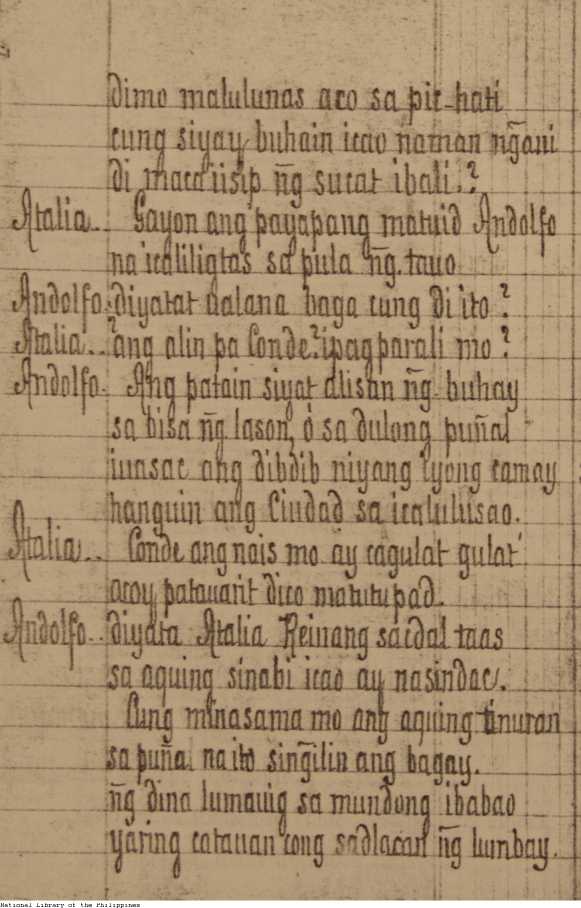 dimo malulunas aco sa pit-hati
cung siyay buhain icao naman ng̃ani
di maca iisip ñg sucat ibali.?
Atalia.. Gayon ang payapang matuid Andolfo
na icaliligtas sa pula ñg tauo
Andolfo. diyatat dalana baga cung di ito?
Atalia.. ?ang alin pa Conde? ipagparali mo?
Andolfo. Ang patain siyat alisan ñg buhay
sa bisa ñg lason, ó sa dulong puñal
iuasac ang dibdib niyang iyong camay
hanguin ang Ciudad sa icalulusao.
Atalia.. Conde ang nais mo ay cagulat gulat
acoy patauarit dico matutupad.
Andolfo.. diyata Atalia Reinang sacdal taas
sa aquing sinabi icao ay nasindac.
Cung minasama mo ang aquing tinuran
sa puña na ito sing̃ilin ang bagay.
ñg dina lumauig sa mundong ibabao
yaring catauan cong sadlacan ñg lumbay.
National Library of the Philippines